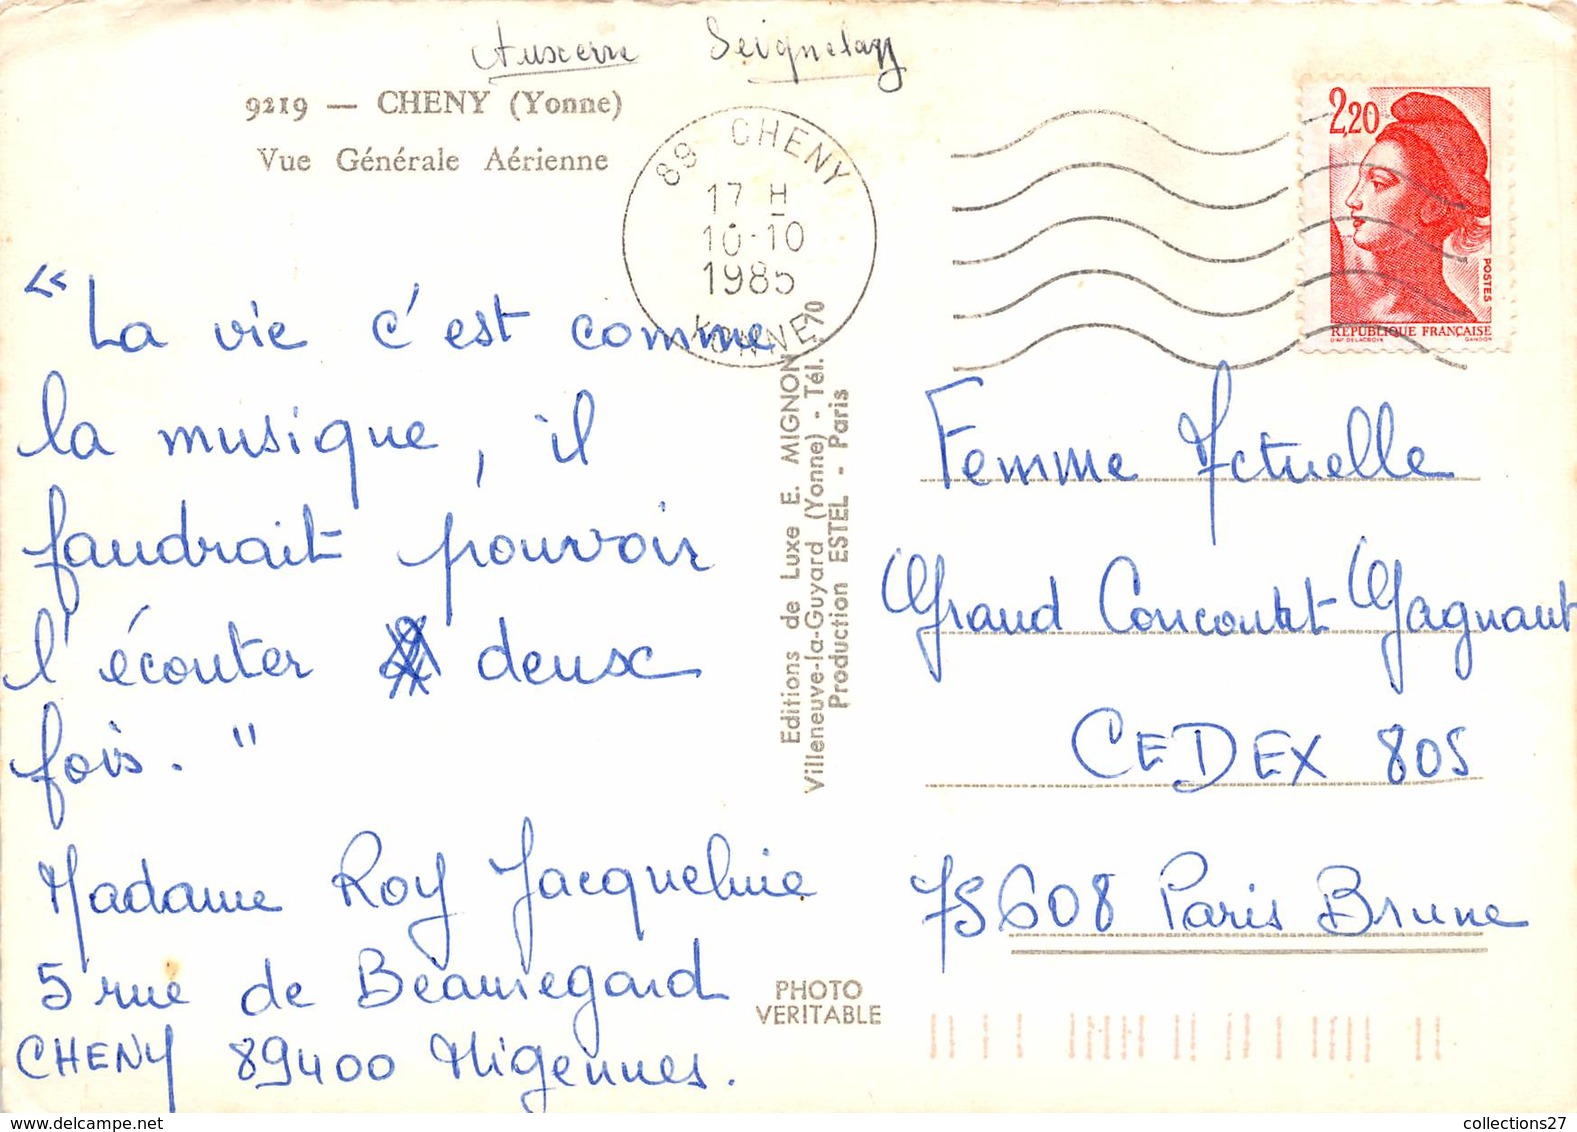 Auxerre Seignelay
9219 — CHENY (Yonne)
Vue Générale Aérienne
89 CHENY
17 H
10-10
1985
YONNE
2,20
POSTES
REPUBLIQUE FRANÇAISE
D'AP. DELACROIX GANDON
« La vie c'est comme
la musique, il
faudrait pouvoir
l'écouter deux
fois. "
Madame Roy Jacqueline
5 rue de Beauregard
CHENY 89400 Migennes.
Editions de Luxe E. MIGNON
Villeneuve-la-Guyard (Yonne) - Tél. 70
Production ESTEL - Paris
PHOTO
VERITABLE
Femme Actuelle
Grand Concours Gagnant
CEDEX 805
75608 Paris Brune
collections27